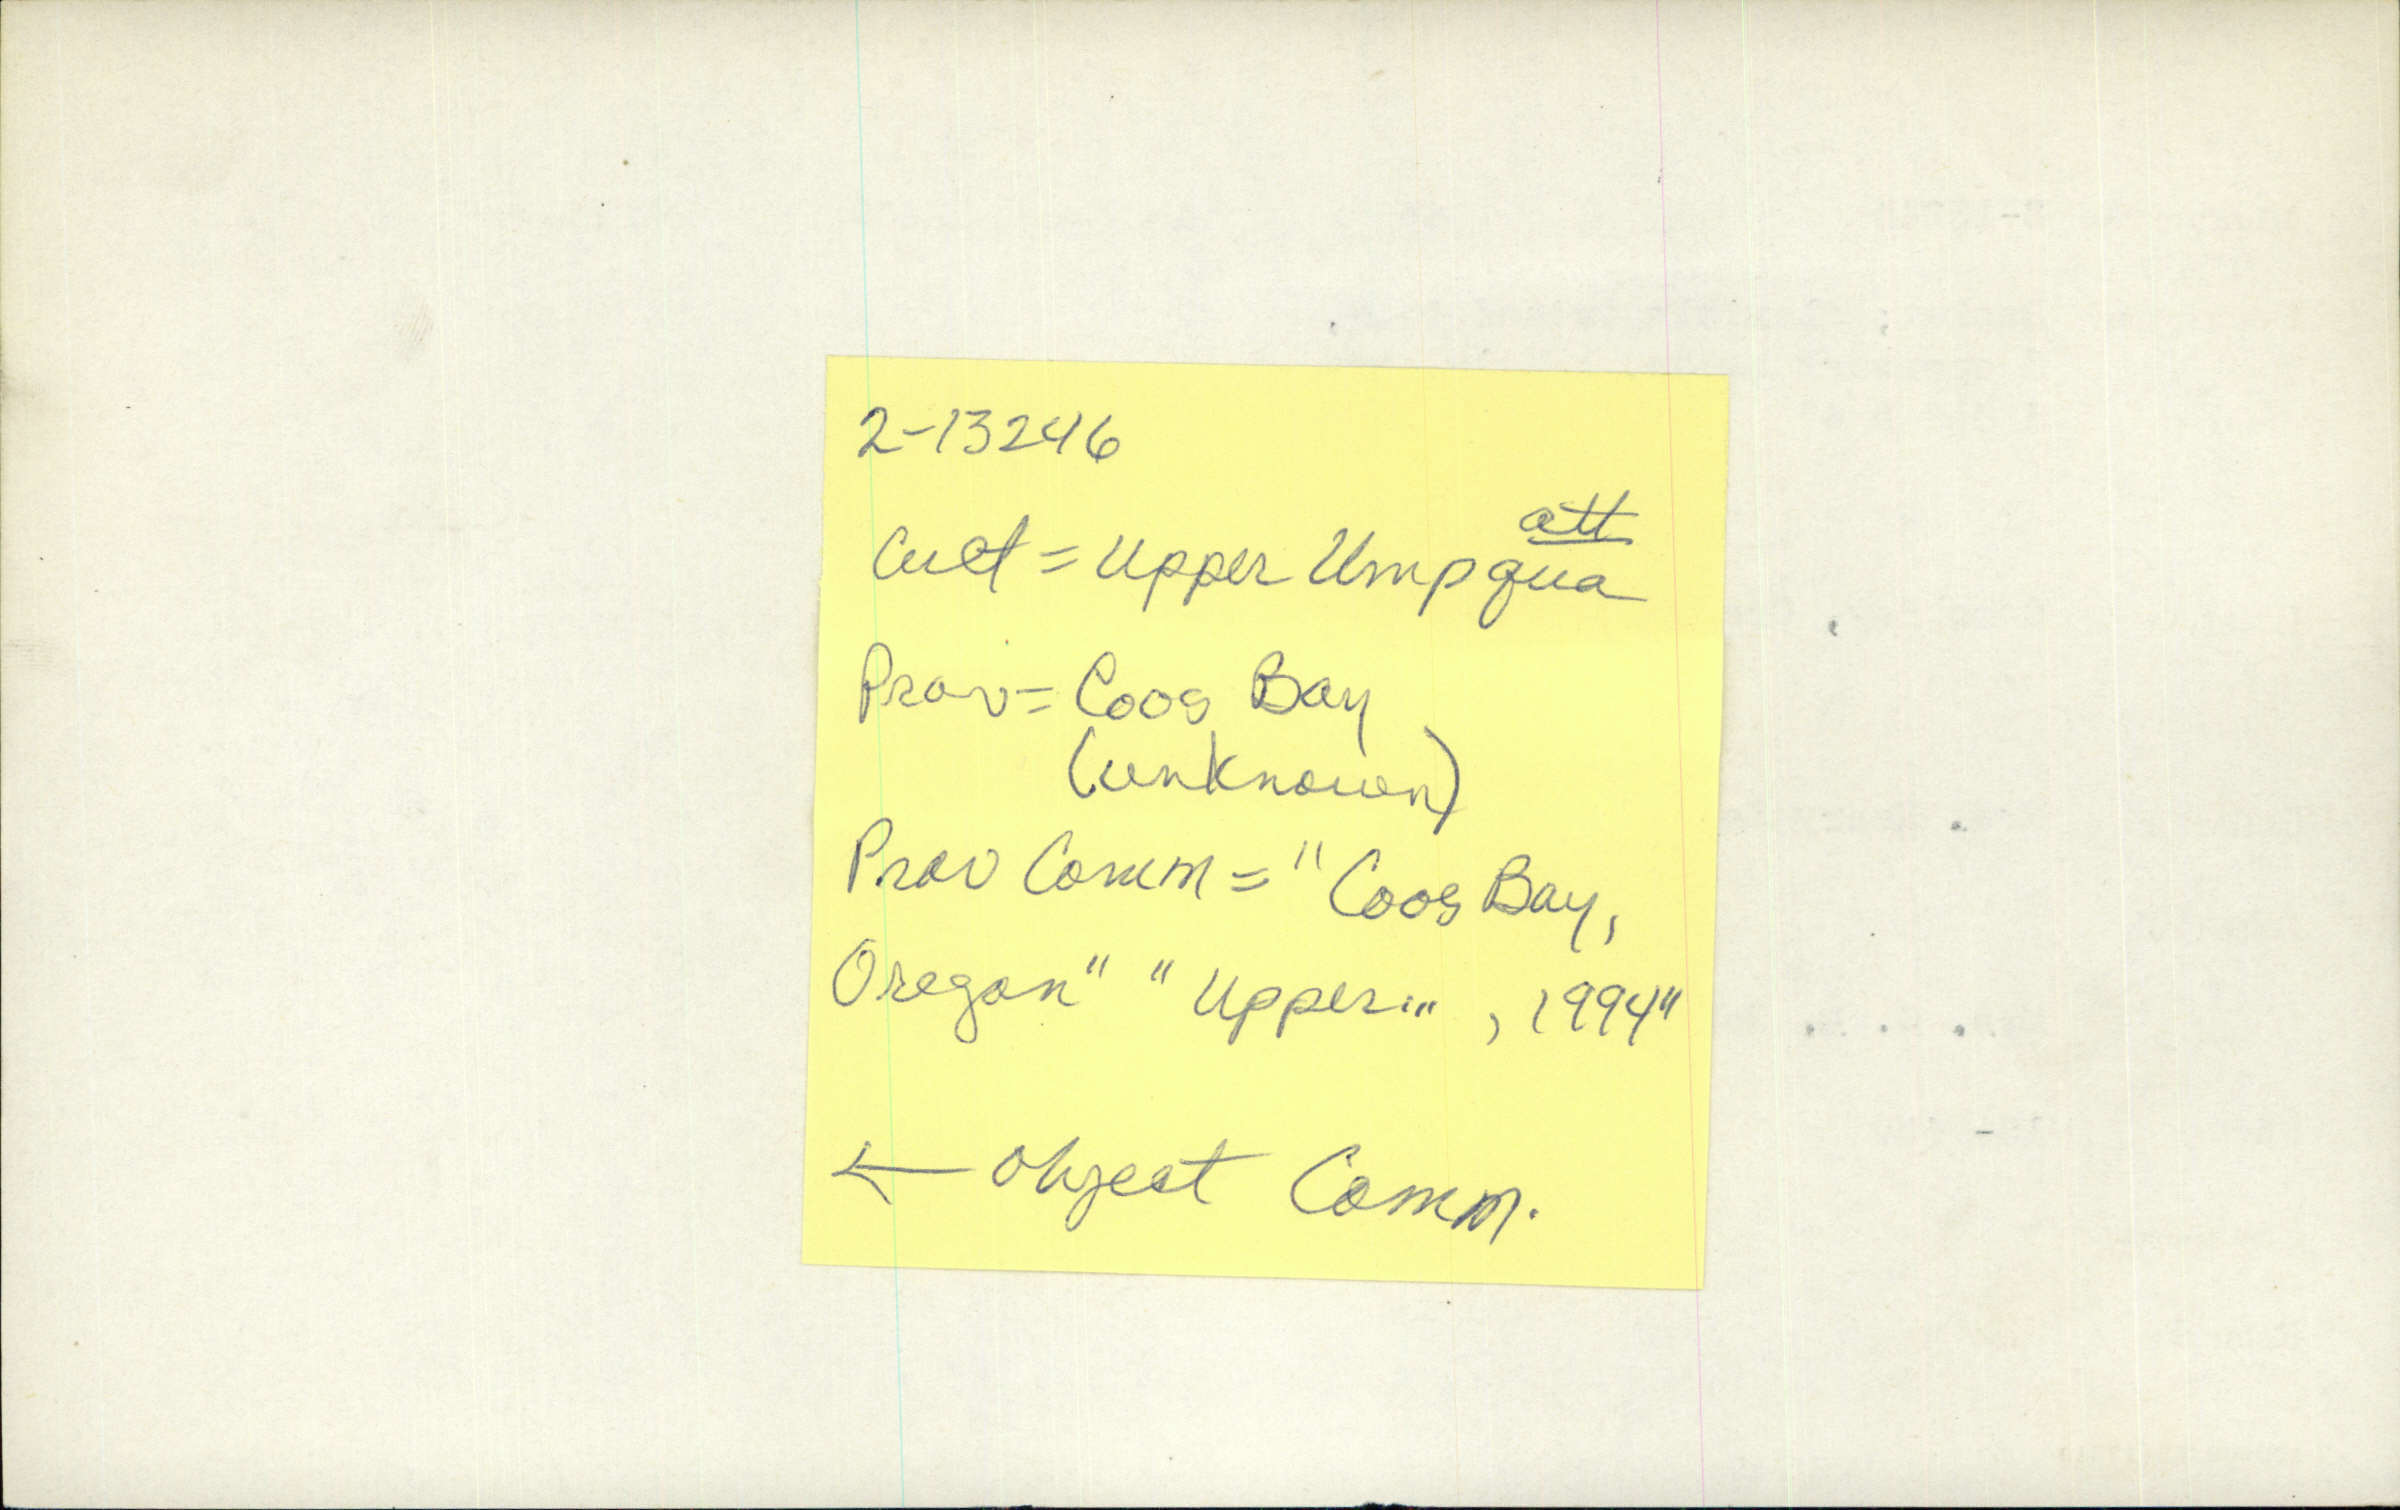 2-13246
att
Cult = Upper Umpqua
Prov = Coos Bay
(unknown)
Prov Comm = "Coos Bay,
Oregon" "Upper... , 1994"
← Object Comm.